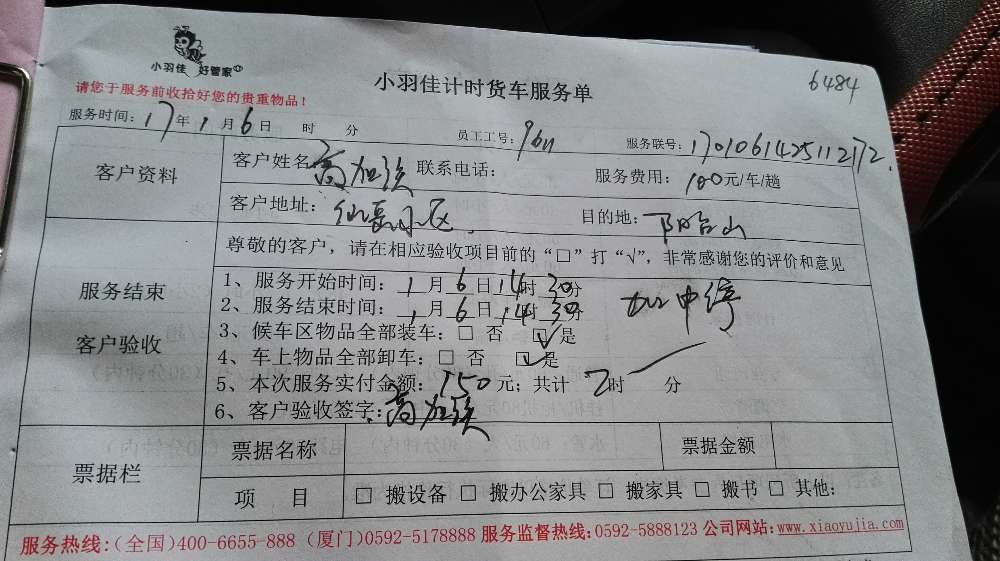 小羽佳 好管家
小羽佳计时货车服务单
6484
请您于服务前收拾好您的贵重物品！
服务时间：17年1月6日 时 分 员工工号：9611 服务联号：17010614251122
客户资料
客户姓名 高加 联系电话： 服务费用：100元/车/趟
客户地址：仙岳小区 目的地：阳台山
服务结束
客户验收
尊敬的客户，请在相应验收项目前的“□”打“√”，非常感谢您的评价和意见
1、服务开始时间：1月6日14时30分
2、服务结束时间：1月6日14时30分
加中停
3、候车区物品全部装车：□ 否 ☑是
4、车上物品全部卸车：□ 否 ☑是
5、本次服务实付金额：150元；共计 2时 分
6、客户验收签字：高加
票据栏
票据名称 票据金额
项 目 □ 搬设备 □ 搬办公家具 □ 搬家具 □ 搬书 □ 其他：
服务热线：（全国）400-6655-888（厦门）0592-5178888 服务监督热线：0592-5888123 公司网站：www.xiaoyujia.com